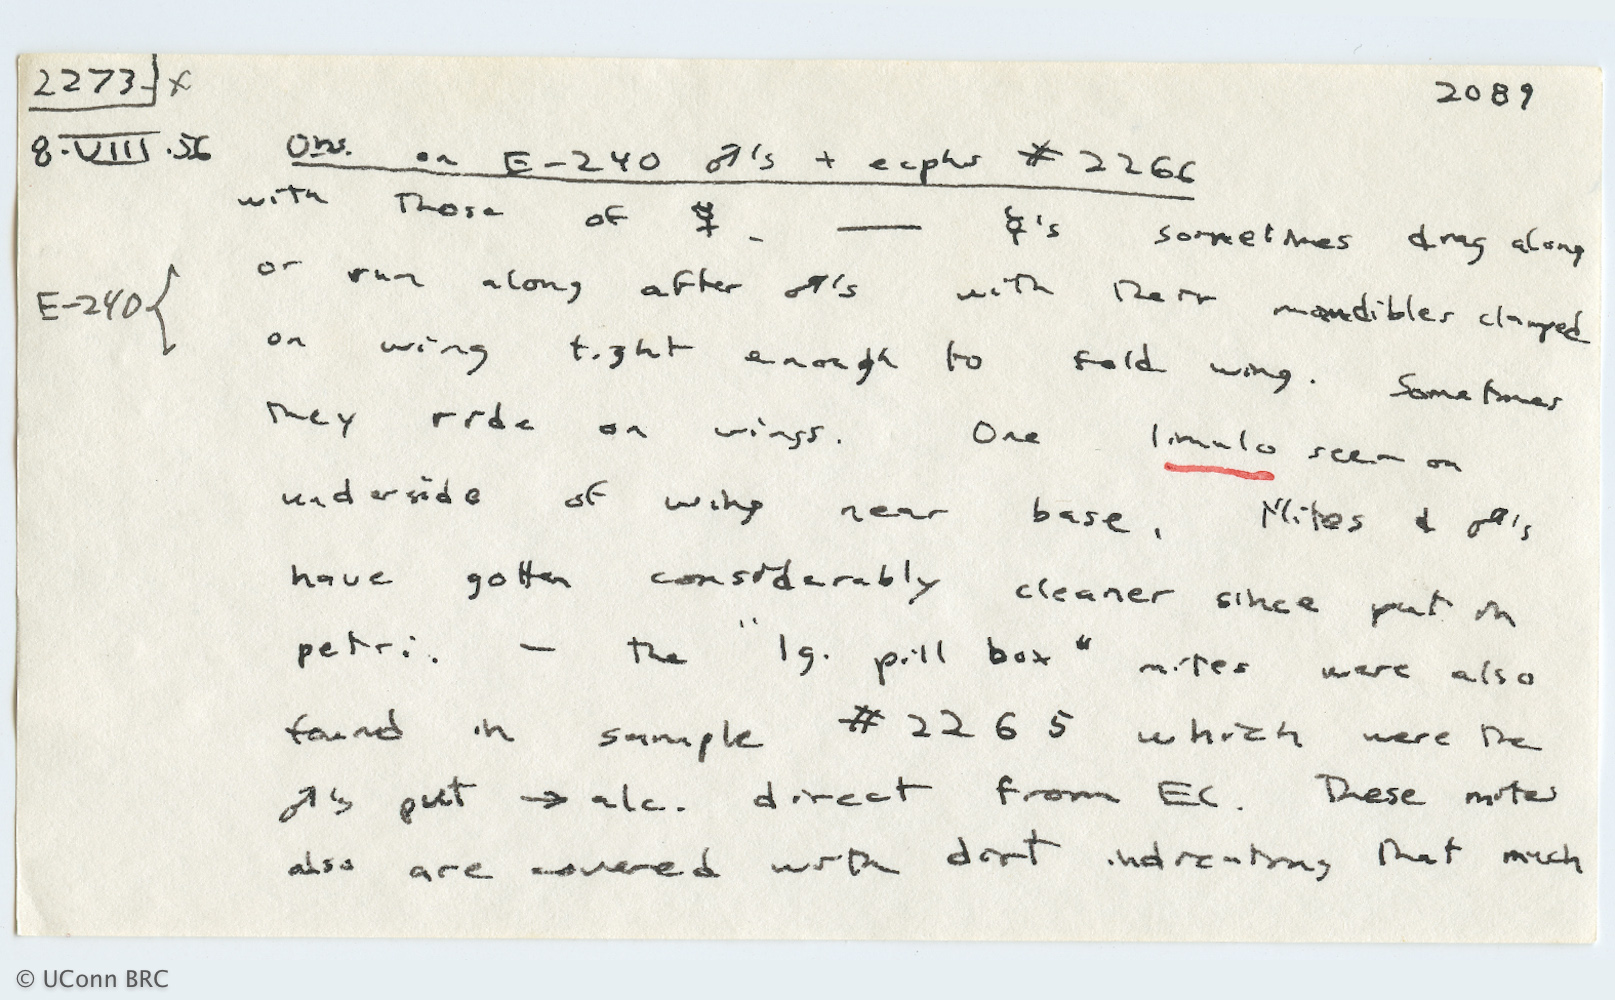 2273 x
2089
8.VIII.56 Obs. on E-240 ♂'s + ecphs # 2266
with those of ☿. — ☿'s sometimes drag along
or run along after ♂'s with their mandibles clamped
E-240 {
on wing tight enough to fold wing. Sometimes
they ride on wings. One limulo seen on
underside of wing near base. Mites & ♂'s
have gotten considerably cleaner since put in
petri. — the "lg. pill box" mites were also
found in sample #2265 which were the
♂'s put → alc. direct from EC. These mites
also are covered with dirt indicating that much
© UConn BRC